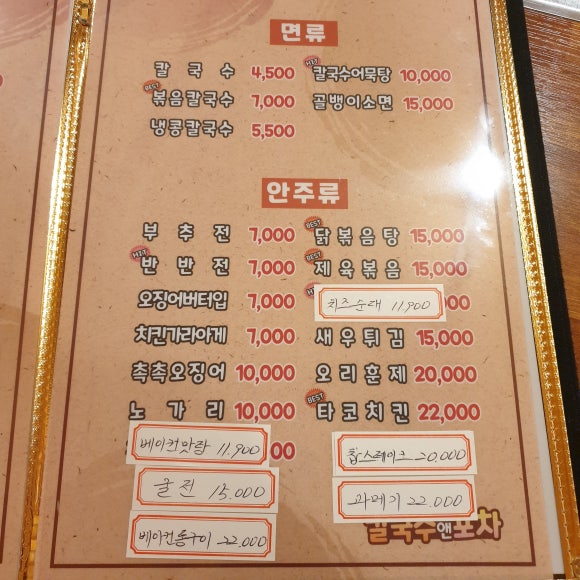 면류
칼국수 4,500
BEST
볶음칼국수 7,000
냉콩칼국수 5,500
HIT
칼국수어묵탕 10,000
골뱅이소면 15,000
안주류
부추전 7,000
HIT
반반전 7,000
오징어버터입 7,000
치킨가라아게 7,000
촉촉오징어 10,000
노가리 10,000
베이컨맛탕 11,900
00
굴전 15,000
베이컨통구이 22,000
BEST
닭볶음탕 15,000
BEST
제육볶음 15,000
치즈순대 11,900
새우튀김 15,000
오리훈제 20,000
BEST
타코치킨 22,000
찹스테이크 20,000
과메기 22,000
칼국수앤포차